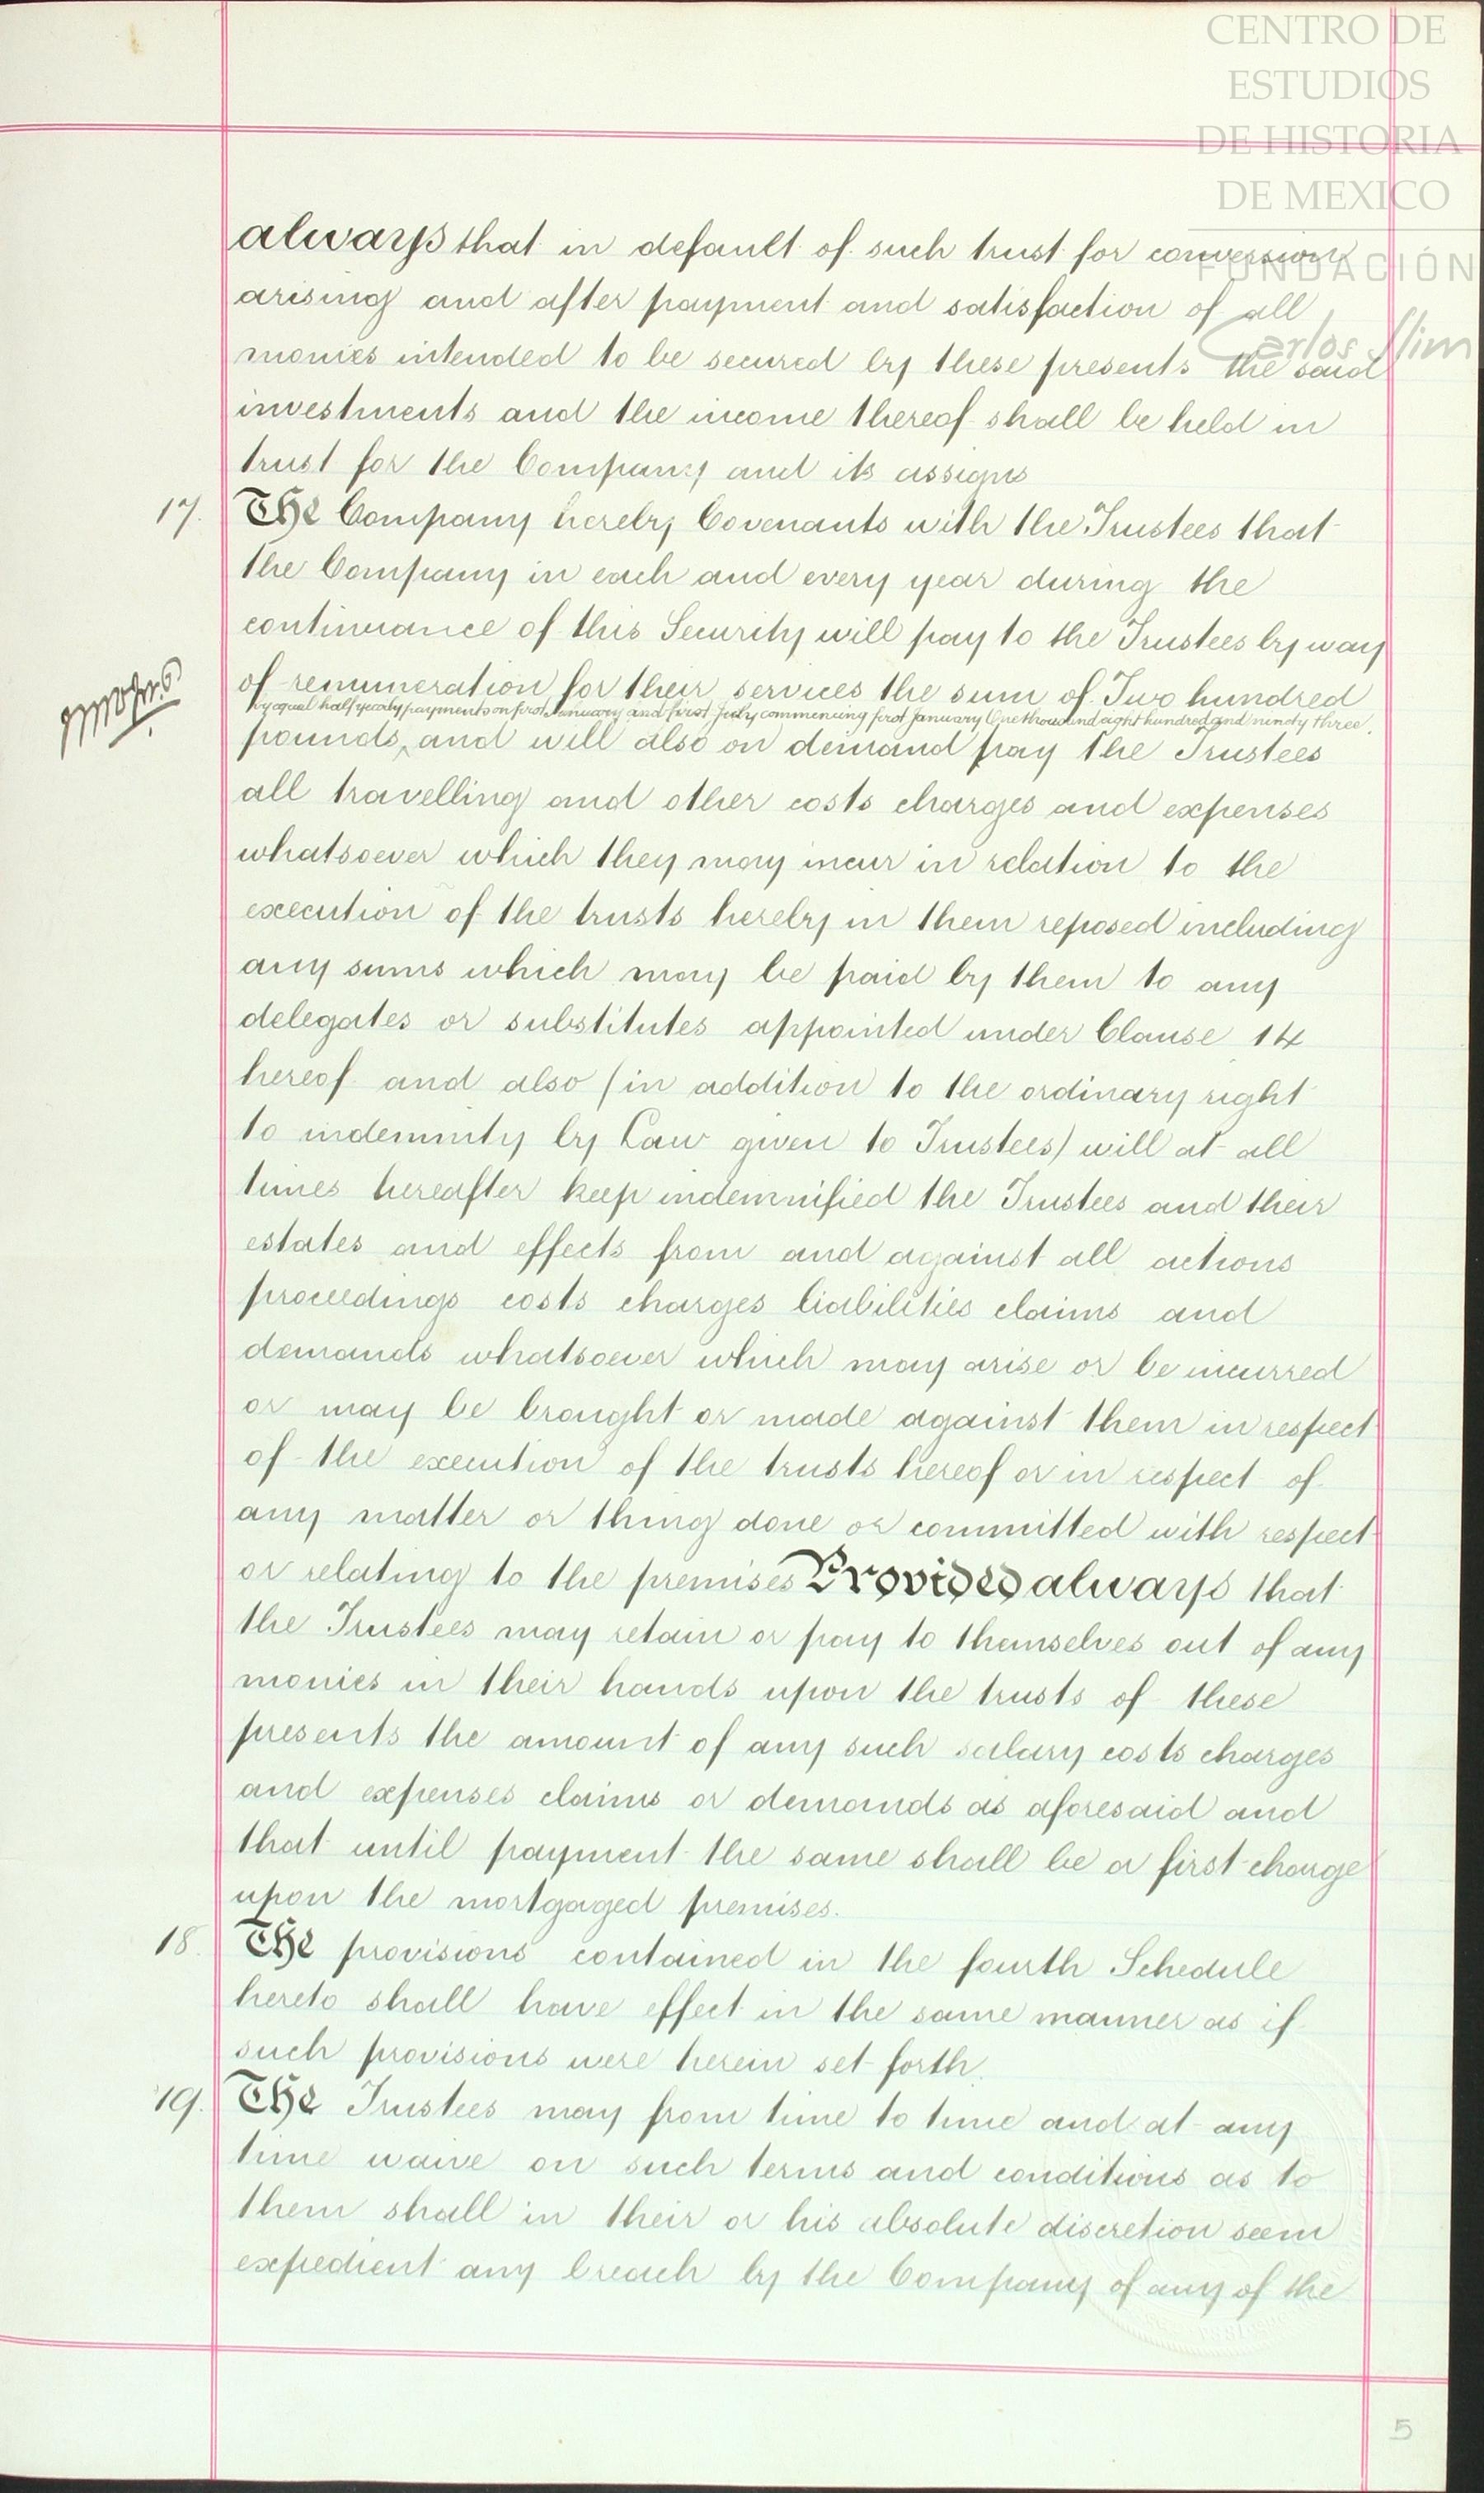 CENTRO DE
ESTUDIOS
DE HISTORIA
DE MEXICO
FUNDACIÓN
Carlos Slim
always that in default of such trust for conversion
arising and after payment and satisfaction of all
monies intended to be secured by these presents the said
investments and the income thereof shall be held in
trust for the Company and its assigns
17. The Company hereby Covenants with the Trustees that
the Company in each and every year during the
continuance of this Security will pay to the Trustees by way
of remuneration for their services the sum of Two hundred
by equal half yearly payments on first January and first July commencing first January One thousand eight hundred and ninety three.
pounds and will also on demand pay the Trustees
all travelling and other costs charges and expenses
whatsoever which they may incur in relation to the
execution of the trusts hereby in them reposed including
any sums which may be paid by them to any
delegates or substitutes appointed under Clause 14
hereof and also (in addition to the ordinary right
to indemnity by Law given to Trustees) will at all
times hereafter keep indemnified the Trustees and their
estates and effects from and against all actions
proceedings costs charges liabilities claims and
demands whatsoever which may arise or be incurred
or may be brought or made against them in respect
of the execution of the trusts hereof or in respect of
any matter or thing done or committed with respect
or relating to the premises Provided always that
the Trustees may retain or pay to themselves out of any
monies in their hands upon the trusts of these
presents the amount of any such salary costs charges
and expenses claims or demands as aforesaid and
that until payment the same shall be a first charge
upon the mortgaged premises.
18. The provisions contained in the fourth Schedule
hereto shall have effect in the same manner as if
such provisions were herein set forth.
19. The Trustees may from time to time and at any
time waive on such terms and conditions as to
them shall in their or his absolute discretion seem
expedient any breach by the Company of any of the
5